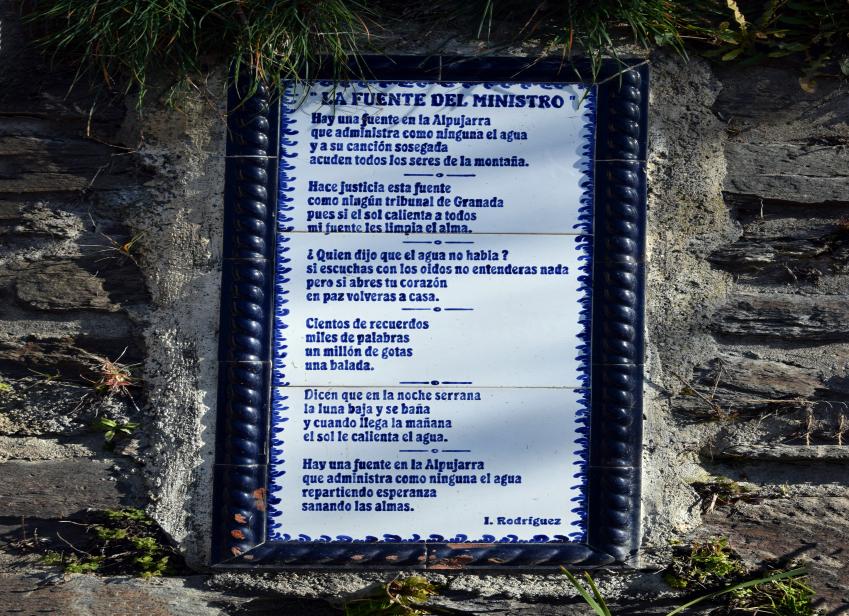 " LA FUENTE DEL MINISTRO "
Hay una fuente en la Alpujarra
que administra como ninguna el agua
y a su canción sosegada
acuden todos los seres de la montaña.
Hace justicia esta fuente
como ningún tribunal de Granada
pues si el sol calienta a todos
mi fuente les limpia el alma.
¿ Quien dijo que el agua no habia ?
si escuchas con los oidos no entenderas nada
pero si abres tu corazón
en paz volveras a casa.
Cientos de recuerdos
miles de palabras
un millón de gotas
una balada.
Dicen que en la noche serrana
la luna baja y se baña
y cuando llega la mañana
el sol le calienta el agua.
Hay una fuente en la Alpujarra
que administra como ninguna el agua
repartiendo esperanza
sanando las almas.
I. Rodríguez